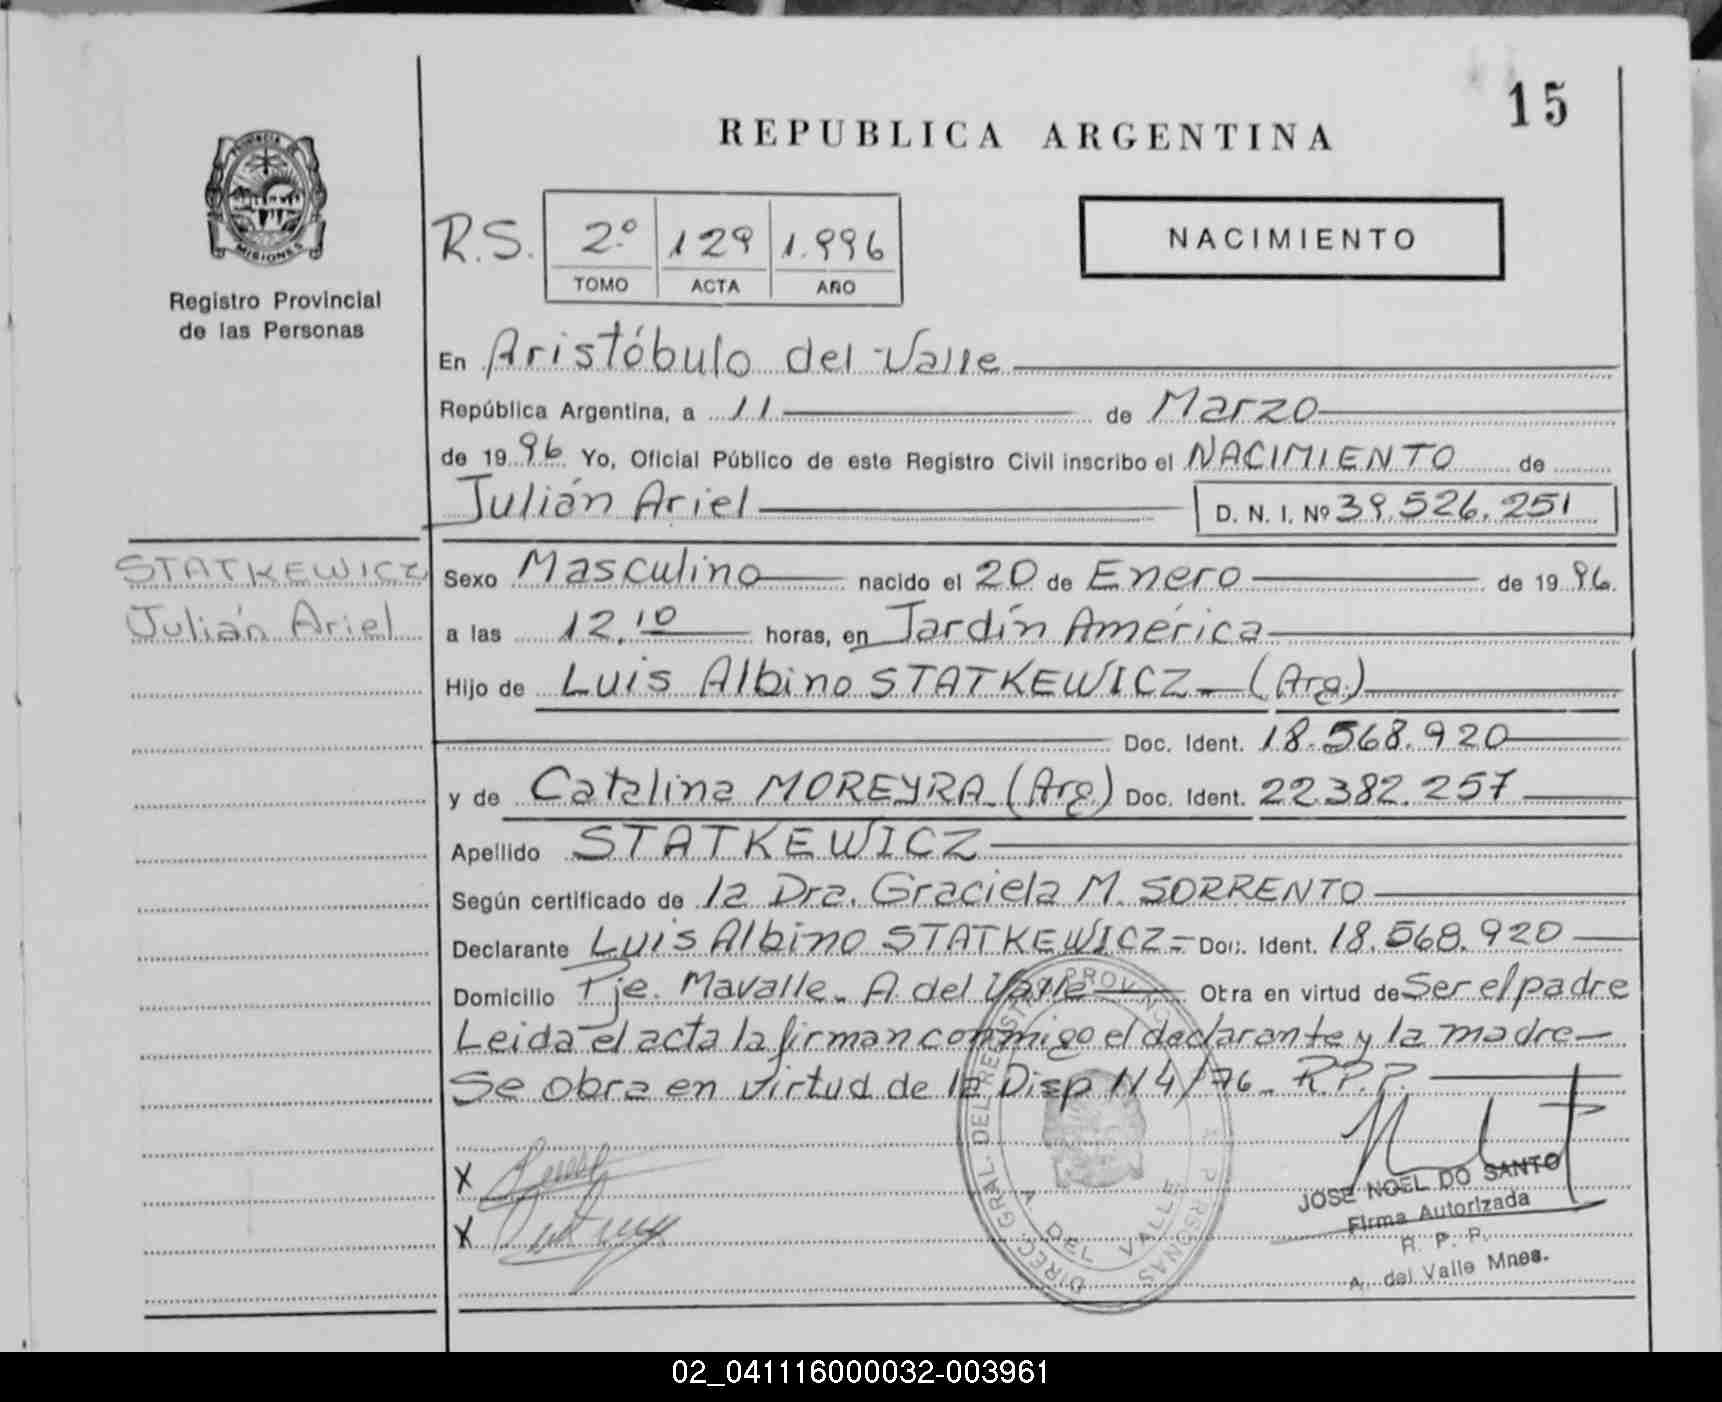 15
REPUBLICA ARGENTINA
PROVINCIA DE
MISIONES
Registro Provincial
de las Personas
R.S. 2º 129 1.996
TOMO ACTA AÑO
NACIMIENTO
En Aristóbulo del Valle
República Argentina, a 11 de Marzo
de 1996 Yo, Oficial Público de este Registro Civil inscribo el NACIMIENTO de
Julián Ariel D. N. I. Nº 39.526.251
STATKEWICZ
Julián Ariel
Sexo Masculino nacido el 20 de Enero de 1996.
a las 12.10 horas, en Jardín América
Hijo de Luis Albino STATKEWICZ- (Arg.)
Doc. Ident. 18.568.920
y de Catalina MOREYRA-(Arg) Doc. Ident. 22.382.257
Apellido STATKEWICZ
Según certificado de la Dra. Graciela M. SORRENTO
Declarante Luis Albino STATKEWICZ= Doc. Ident. 18.568.920
Domicilio Pje. Mavalle- A del Valle Obra en virtud de Ser el padre
Leida el acta la firman conmigo el declarante y la madre-
Se obra en virtud de la Disp 114/76- R.P.P.
X
X
DIREC. GRAL. DEL REGISTRO PROVINC
PERSONAS
A DEL VALLE
JOSE NOEL DO SANTO
Firma Autorizada
R. P. P.
A. del Valle Mnes.
02_041116000032-003961